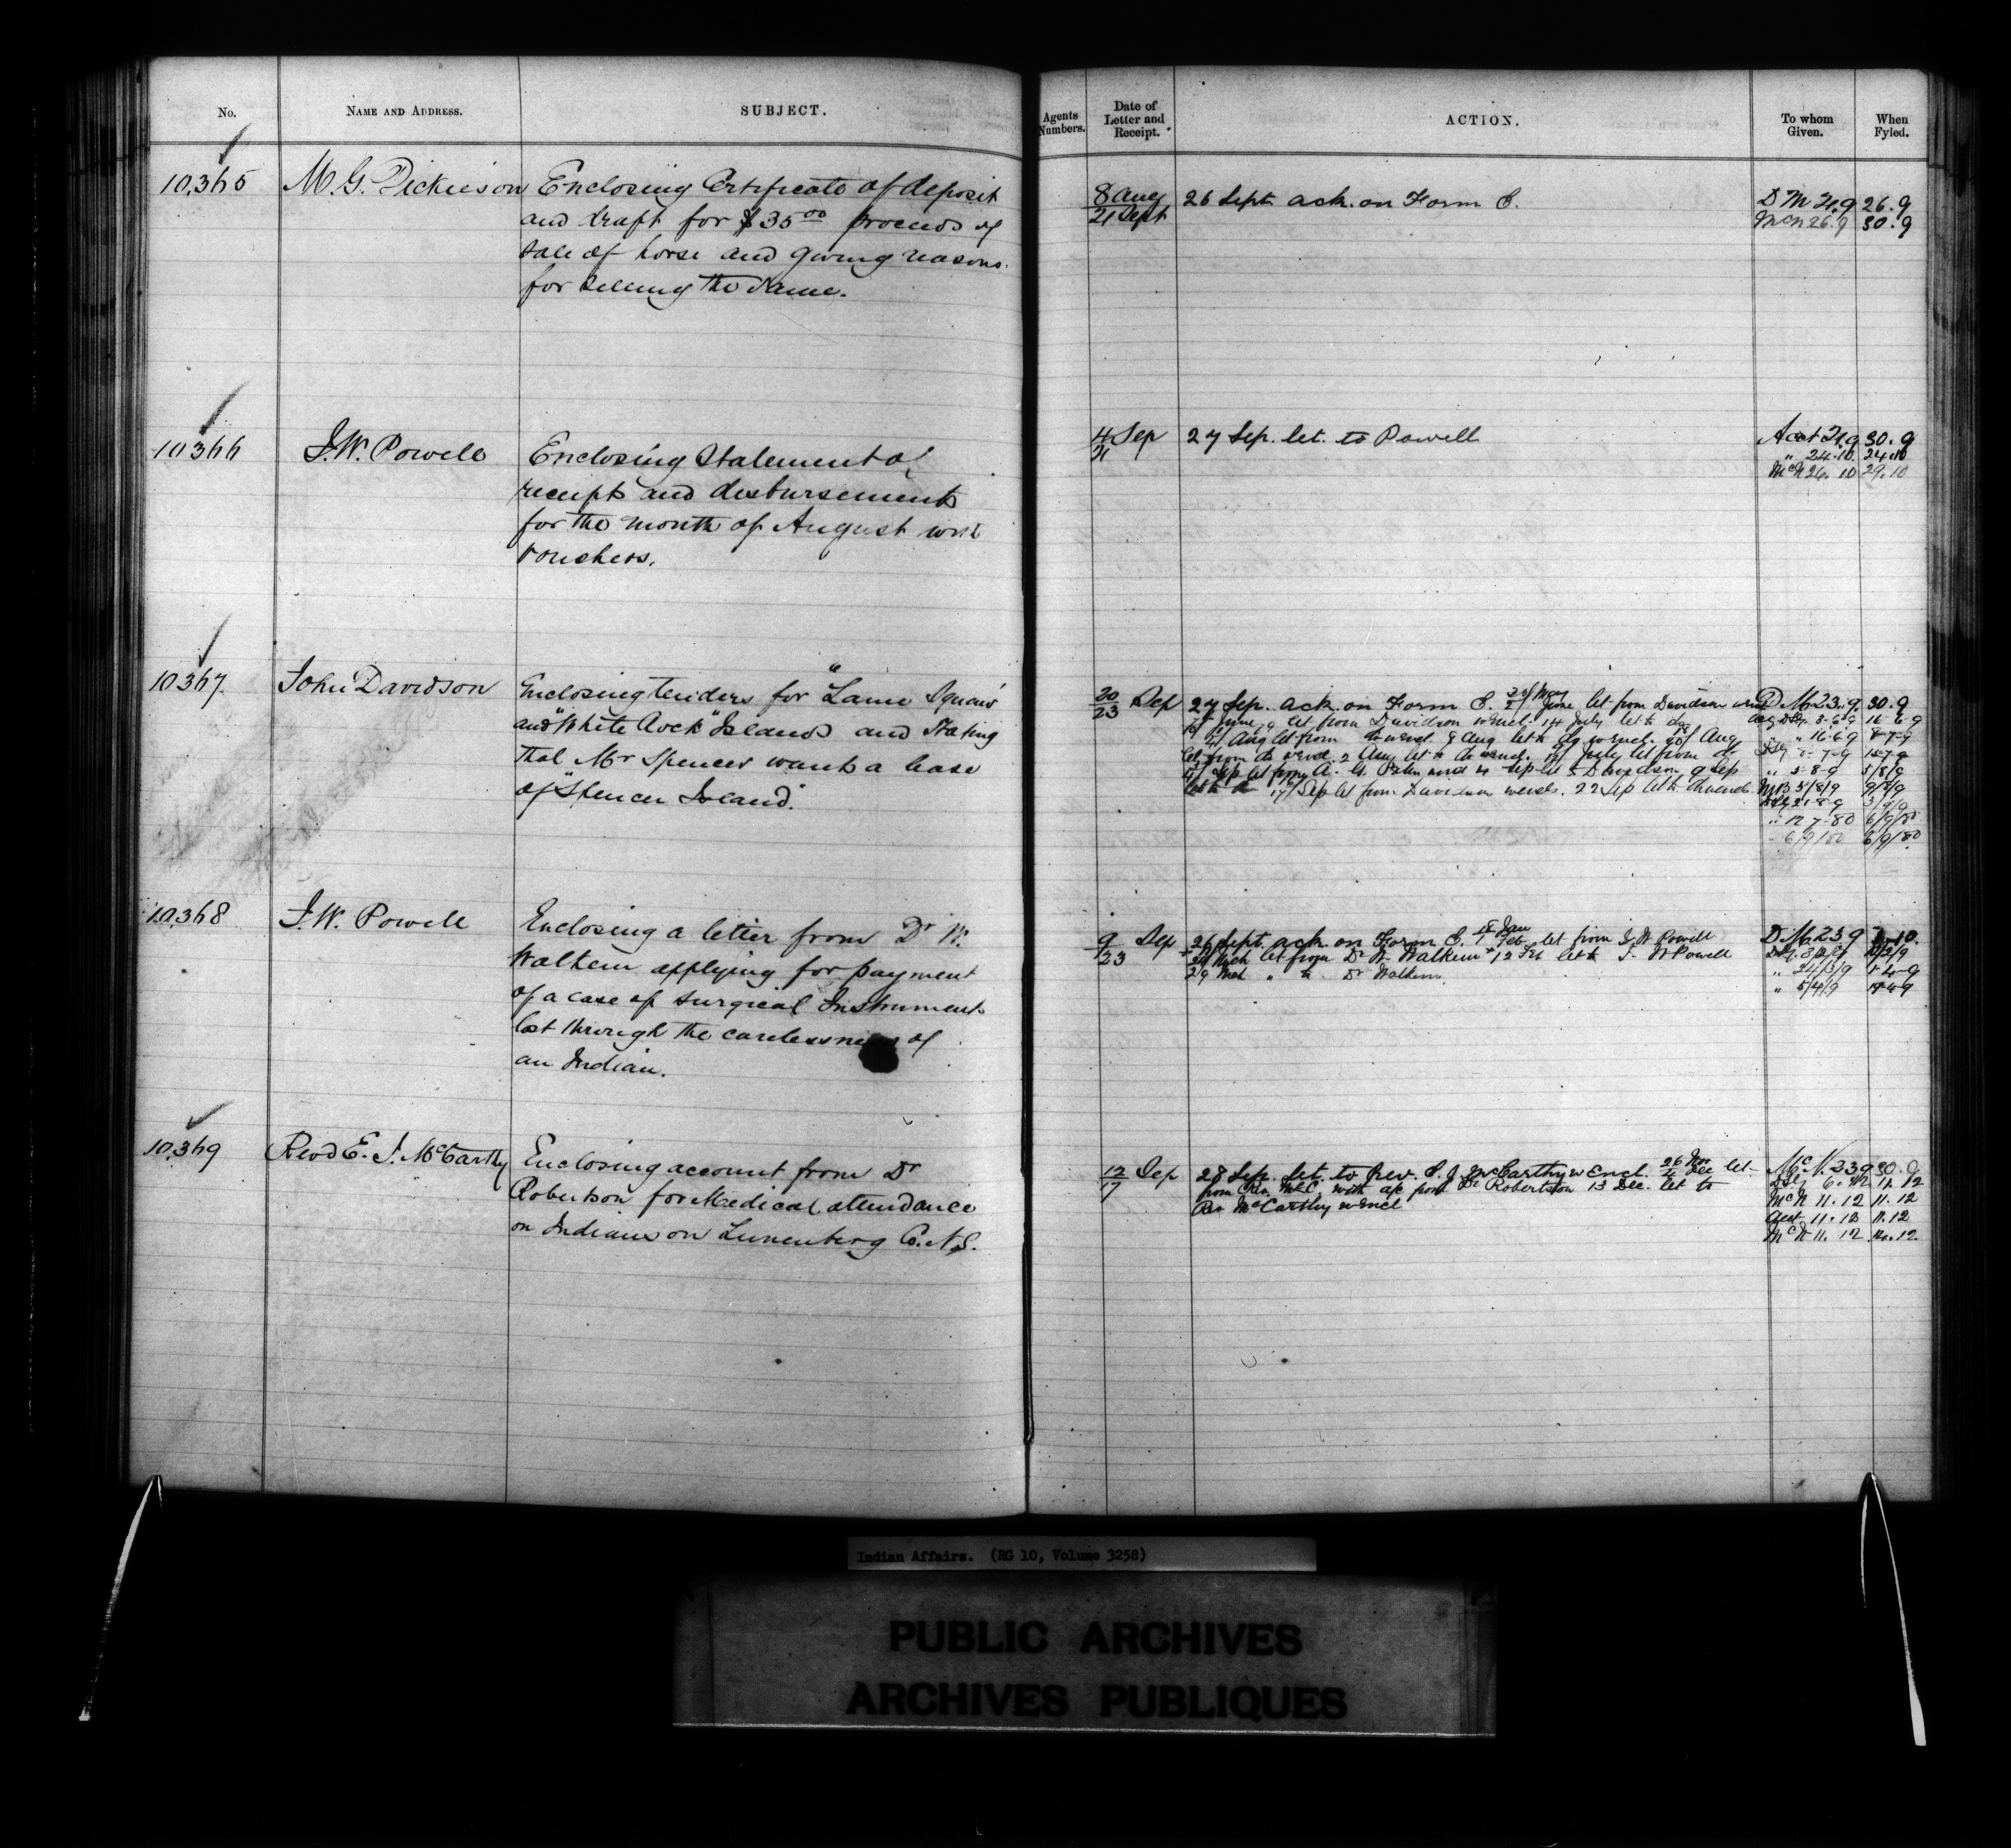 No.
NAME AND ADDRESS.
SUBJECT.
Agents Numbers.
Date of Letter and Receipt.
ACTION.
To whom Given.
When Fyled.
10,365
M. G. Dickieson
Enclosing Certificate of deposit
and draft for $35 00 proceeds of
sale of horse and giving reasons
for selling the same.
8 Aug
21 Sept
26 Sept. ack. on Form E.
D M 21.9 26.9
McN 26.9 30.9
10366
I. W. Powell
Enclosing Statement of
receipts and disbursements
for the month of August with
vouchers.
4 Sep
21
27 Sep. let. to Powell
Acct 21.9 30.9
" 24.10. 24.10
McN 26.10 29.10
10367
John Davidson
Enclosing tenders for "Lame Squaw"
and "White Rock" Islands and stating
that Mr Spencer wants a lease
of "Spencer Island".
20 Sep
23
27 Sep. ack. on Form E. let from Davidson
June let from Davidson w encl. 14 July let to do
Aug let from do w encl. 8 Aug let to do w encl. Aug
let from do w encl. 2 Aug let to do w encl. July let from do
Sep let from A. G. 4 Sep let to Davidson 9 Sep
let to do 17 Sep let from Davidson w encls. 22 Sep let to do w encl.
D. M. 23.9. 30.9
8-6-9 16-6-9
" 16-6-9 8-7-9
8-7-9 15-7-9
" 5-8-9 5/8/9
5/8/9 9/8/9
21-8-9 3/9/9
" 12 7-80 6/9/80
6/9/80 6/9/80
10,368
I. W. Powell
Enclosing a letter from Dr W.
Walkem applying for payment
of a case of surgical Instruments
lost through the carelessness of
an Indian.
9 Sep
23
26 Sept. ack. on Form E. 18 Jan / 1 Feb let from I. W. Powell
Mch let from Dr W. Walkem 12 Feb let to I. W Powell
29 Mch " to Dr Walkem.
D. M. 23 9 10.
" 24/3/9 1-4-9
" 5/4/9
10,369
Revd E. J. McCarthy
Enclosing account from Dr
Robertson for Medical attendance
on Indians on Lunenberg Co. N.S.
12 Sep
17
28 Sep. let. to Rev. E. J. McCarthy w Encl. 26 Nov / 4 Dec let
from Rev. McC. with a/c from Dr Robertson 13 Dec. let to
Rev McCarthy w encl
McN. 23 9 30.9
6.12 11.12
McN 11.12 11.12
Acct 11.12 11.12
McN 11.12 14.12
Indian Affairs. (RG 10, Volume 3258)
PUBLIC ARCHIVES
ARCHIVES PUBLIQUES